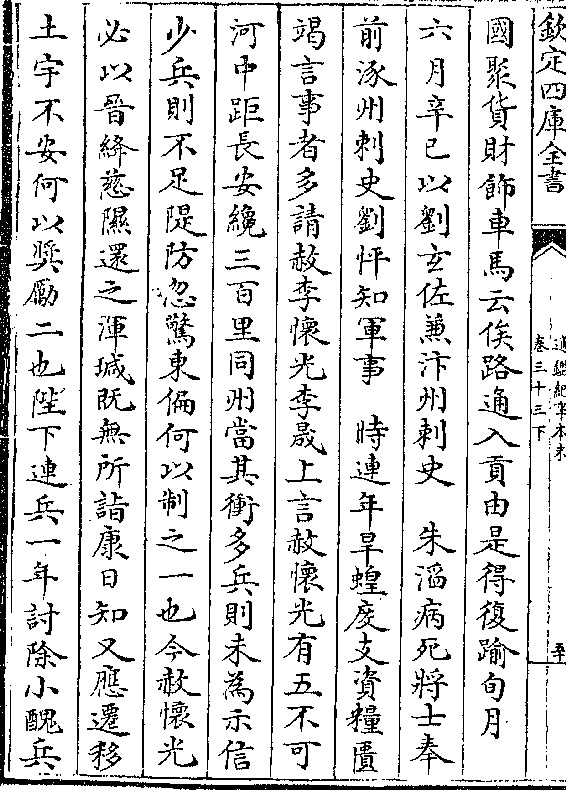 欽定四庫全書
通鑑紀事本末
卷三十三下
國聚貨財飾車馬云俟路通入貢由是得復踰旬月
六月辛巳以劉玄佐兼汴州刺史 朱滔病死將士奉
前涿州刺史劉怦知軍事 時連年旱蝗度支資糧匱
竭言事者多請赦李懷光李晟上言赦懷光有五不可
河中距長安纔三百里同州當其衝多兵則未為示信
少兵則不足隄防忽驚東偏何以制之一也今赦懷光
必以晉絳慈隰還之渾瑊既無所詣康日知又應遷移
土宇不安何以奬勵二也陛下連兵一年討除小醜兵